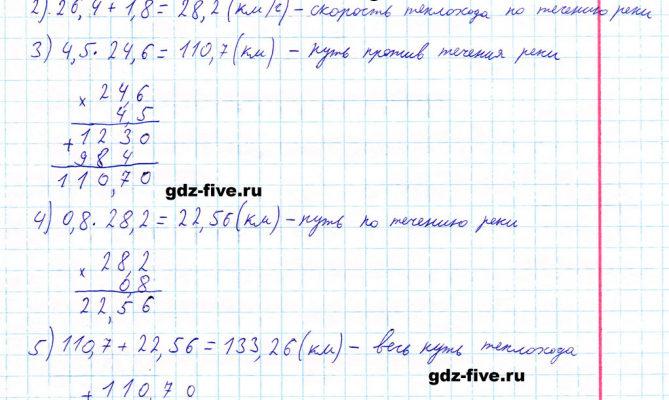 2) 26,4 + 1,8 = 28,2 (км/ч) – скорость теплохода по течению реки
3) 4,5 · 24,6 = 110,7 (км) – путь против течения реки
× 24,6
4,5
+ 1230
984
110,70
gdz-five.ru
4) 0,8 · 28,2 = 22,56 (км) – путь по течению реки
× 28,2
0,8
22,56
5) 110,7 + 22,56 = 133,26 (км) – весь путь теплохода
gdz-five.ru
+ 110,70